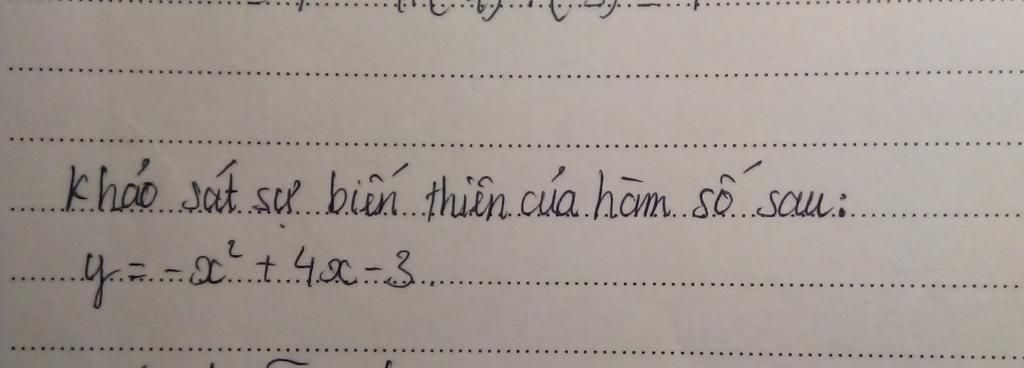 Khảo sát sự biến thiên của hàm số sau:
y = -x² + 4x - 3